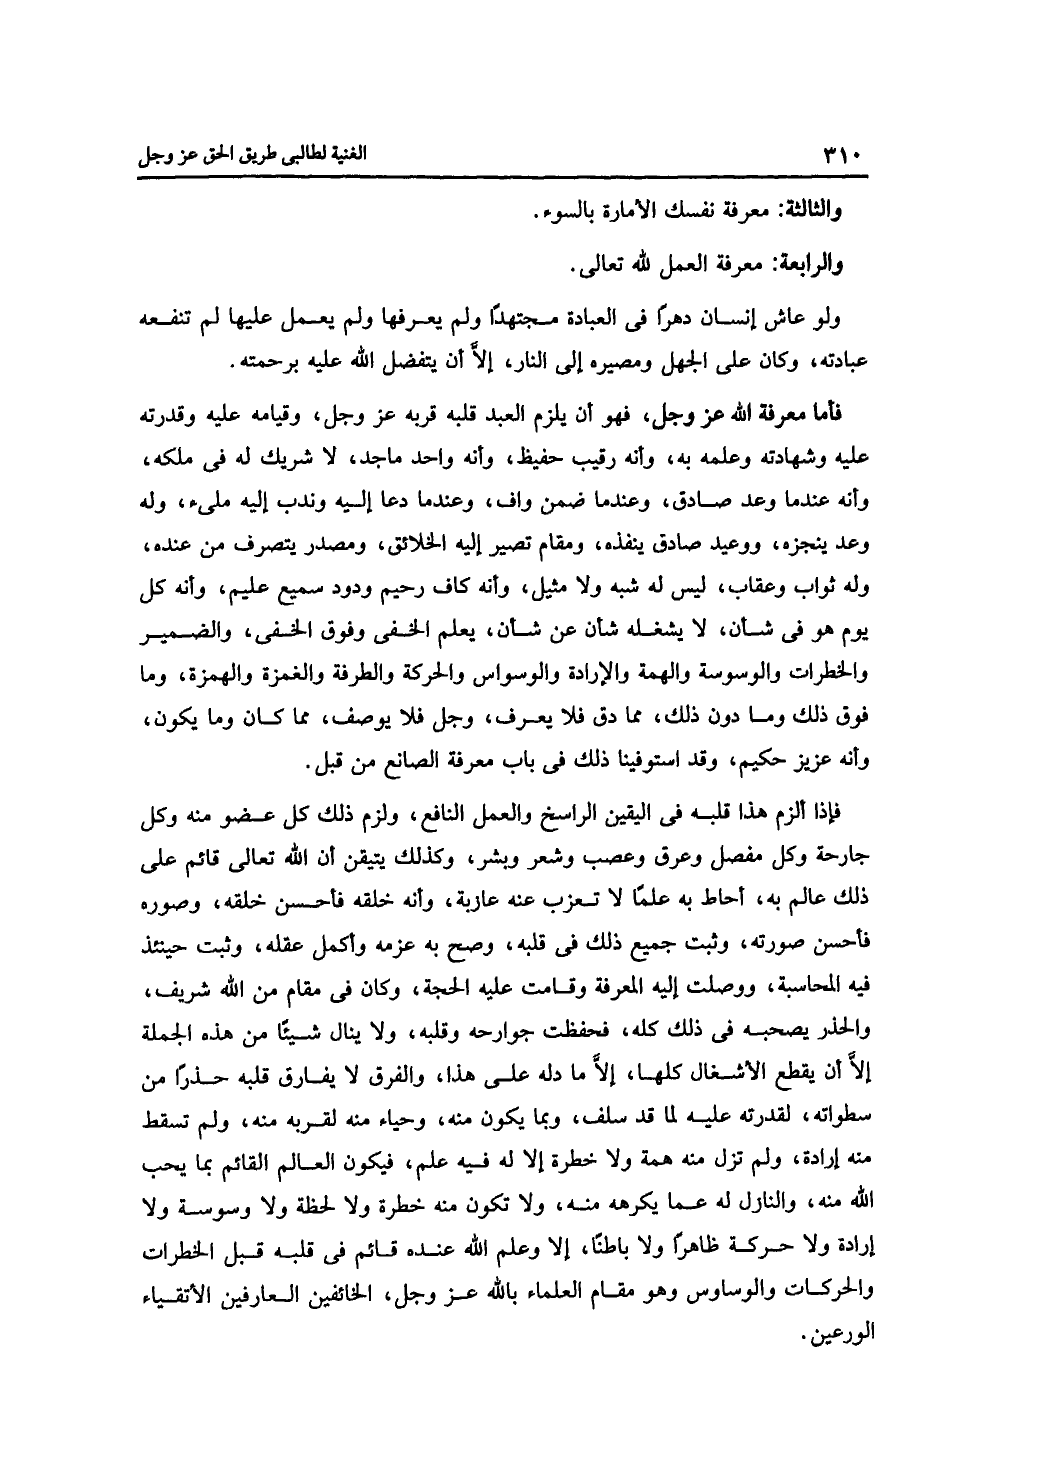 ٣١٠ الغنية لطالبى طريق الحق عز وجل
والثالثة: معرفة نفسك الأمارة بالسوء.
والرابعة: معرفة العمل لله تعالى.
ولو عاش إنسان دهرًا فى العبادة مجتهدًا ولم يعرفها ولم يعمل عليها لم تنفعه
عبادته، وكان على الجهل ومصيره إلى النار، إلاَّ أن يتفضل الله عليه برحمته.
فأما معرفة الله عز وجل، فهو أن يلزم العبد قلبه قربه عز وجل، وقيامه عليه وقدرته
عليه وشهادته وعلمه به، وأنه رقيب حفيظ، وأنه واحد ماجد، لا شريك له فى ملكه،
وأنه عندما وعد صادق، وعندما ضمن واف، وعندما دعا إليه وندب إليه ملىء، وله
وعد ينجزه، ووعيد صادق ينفذه، ومقام تصير إليه الخلائق، ومصدر يتصرف من عنده،
وله ثواب وعقاب، ليس له شبه ولا مثيل، وأنه كاف رحيم ودود سميع عليم، وأنه كل
يوم هو فى شأن، لا يشغله شأن عن شأن، يعلم الخفى وفوق الخفى، والضمير
والخطرات والوسوسة والهمة والإرادة والوسواس والحركة والطرفة والغمزة والهمزة، وما
فوق ذلك وما دون ذلك، مما دق فلا يعرف، وجل فلا يوصف، مما كان وما يكون،
وأنه عزيز حكيم، وقد استوفينا ذلك فى باب معرفة الصانع من قبل.
فإذا ألزم هذا قلبه فى اليقين الراسخ والعمل النافع، ولزم ذلك كل عضو منه وكل
جارحة وكل مفصل وعرق وعصب وشعر وبشر، وكذلك يتيقن أن الله تعالى قائم على
ذلك عالم به، أحاط به علمًا لا تعزب عنه عازبة، وأنه خلقه فأحسن خلقه، وصوره
فأحسن صورته، وثبت جميع ذلك فى قلبه، وصح به عزمه وأكمل عقله، وثبت حينئذ
فيه المحاسبة، ووصلت إليه المعرفة وقامت عليه الحجة، وكان فى مقام من الله شريف،
والحذر يصحبه فى ذلك كله، فحفظت جوارحه وقلبه، ولا ينال شيئًا من هذه الجملة
إلاَّ أن يقطع الأشغال كلها، إلاَّ ما دله على هذا، والفرق لا يفارق قلبه حذرًا من
سطواته، لقدرته عليه لما قد سلف، وبما يكون منه، وحياء منه لقربه منه، ولم تسقط
منه إرادة، ولم تزل منه همة ولا خطرة إلا له فيه علم، فيكون العالم القائم بما يحب
الله منه، والنازل له عما يكرهه منه، ولا تكون منه خطرة ولا لحظة ولا وسوسة ولا
إرادة ولا حركة ظاهرًا ولا باطنًا، إلا وعلم الله عنده قائم فى قلبه قبل الخطرات
والحركات والوساوس وهو مقام العلماء بالله عز وجل، الخائفين العارفين الأتقياء
الورعين.